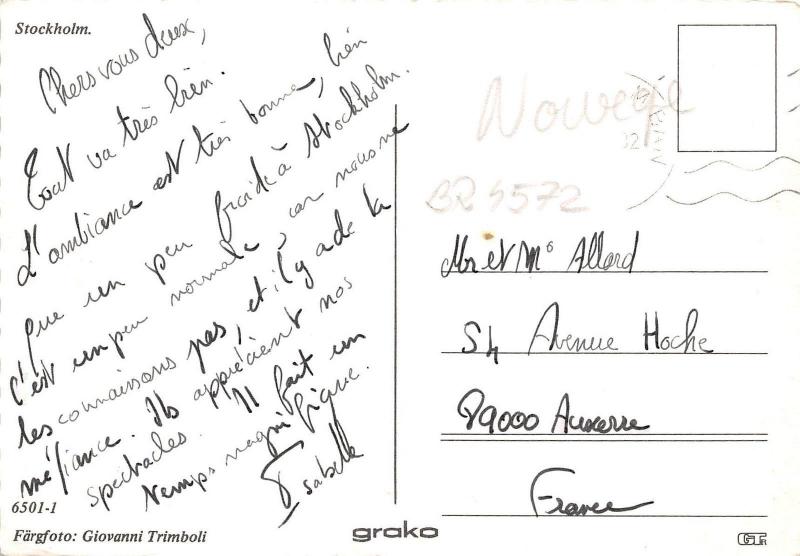 Stockholm.
Chers vous deux,
Tout va très bien.
L'ambiance est très bonne, bien
que un peu froide à Stockholm.
C'est un peu normale, car nous ne
les connaissons pas, et il y a de la
méfiance. Ils apprécient nos
spectacles. Il fait un
temps magnifique.
Isabelle
6501-1
Färgfoto: Giovanni Trimboli
grako
Nowege
BR 5572
Mr et Me Allard
54 Avenue Hoche
89000 Auxerre
France